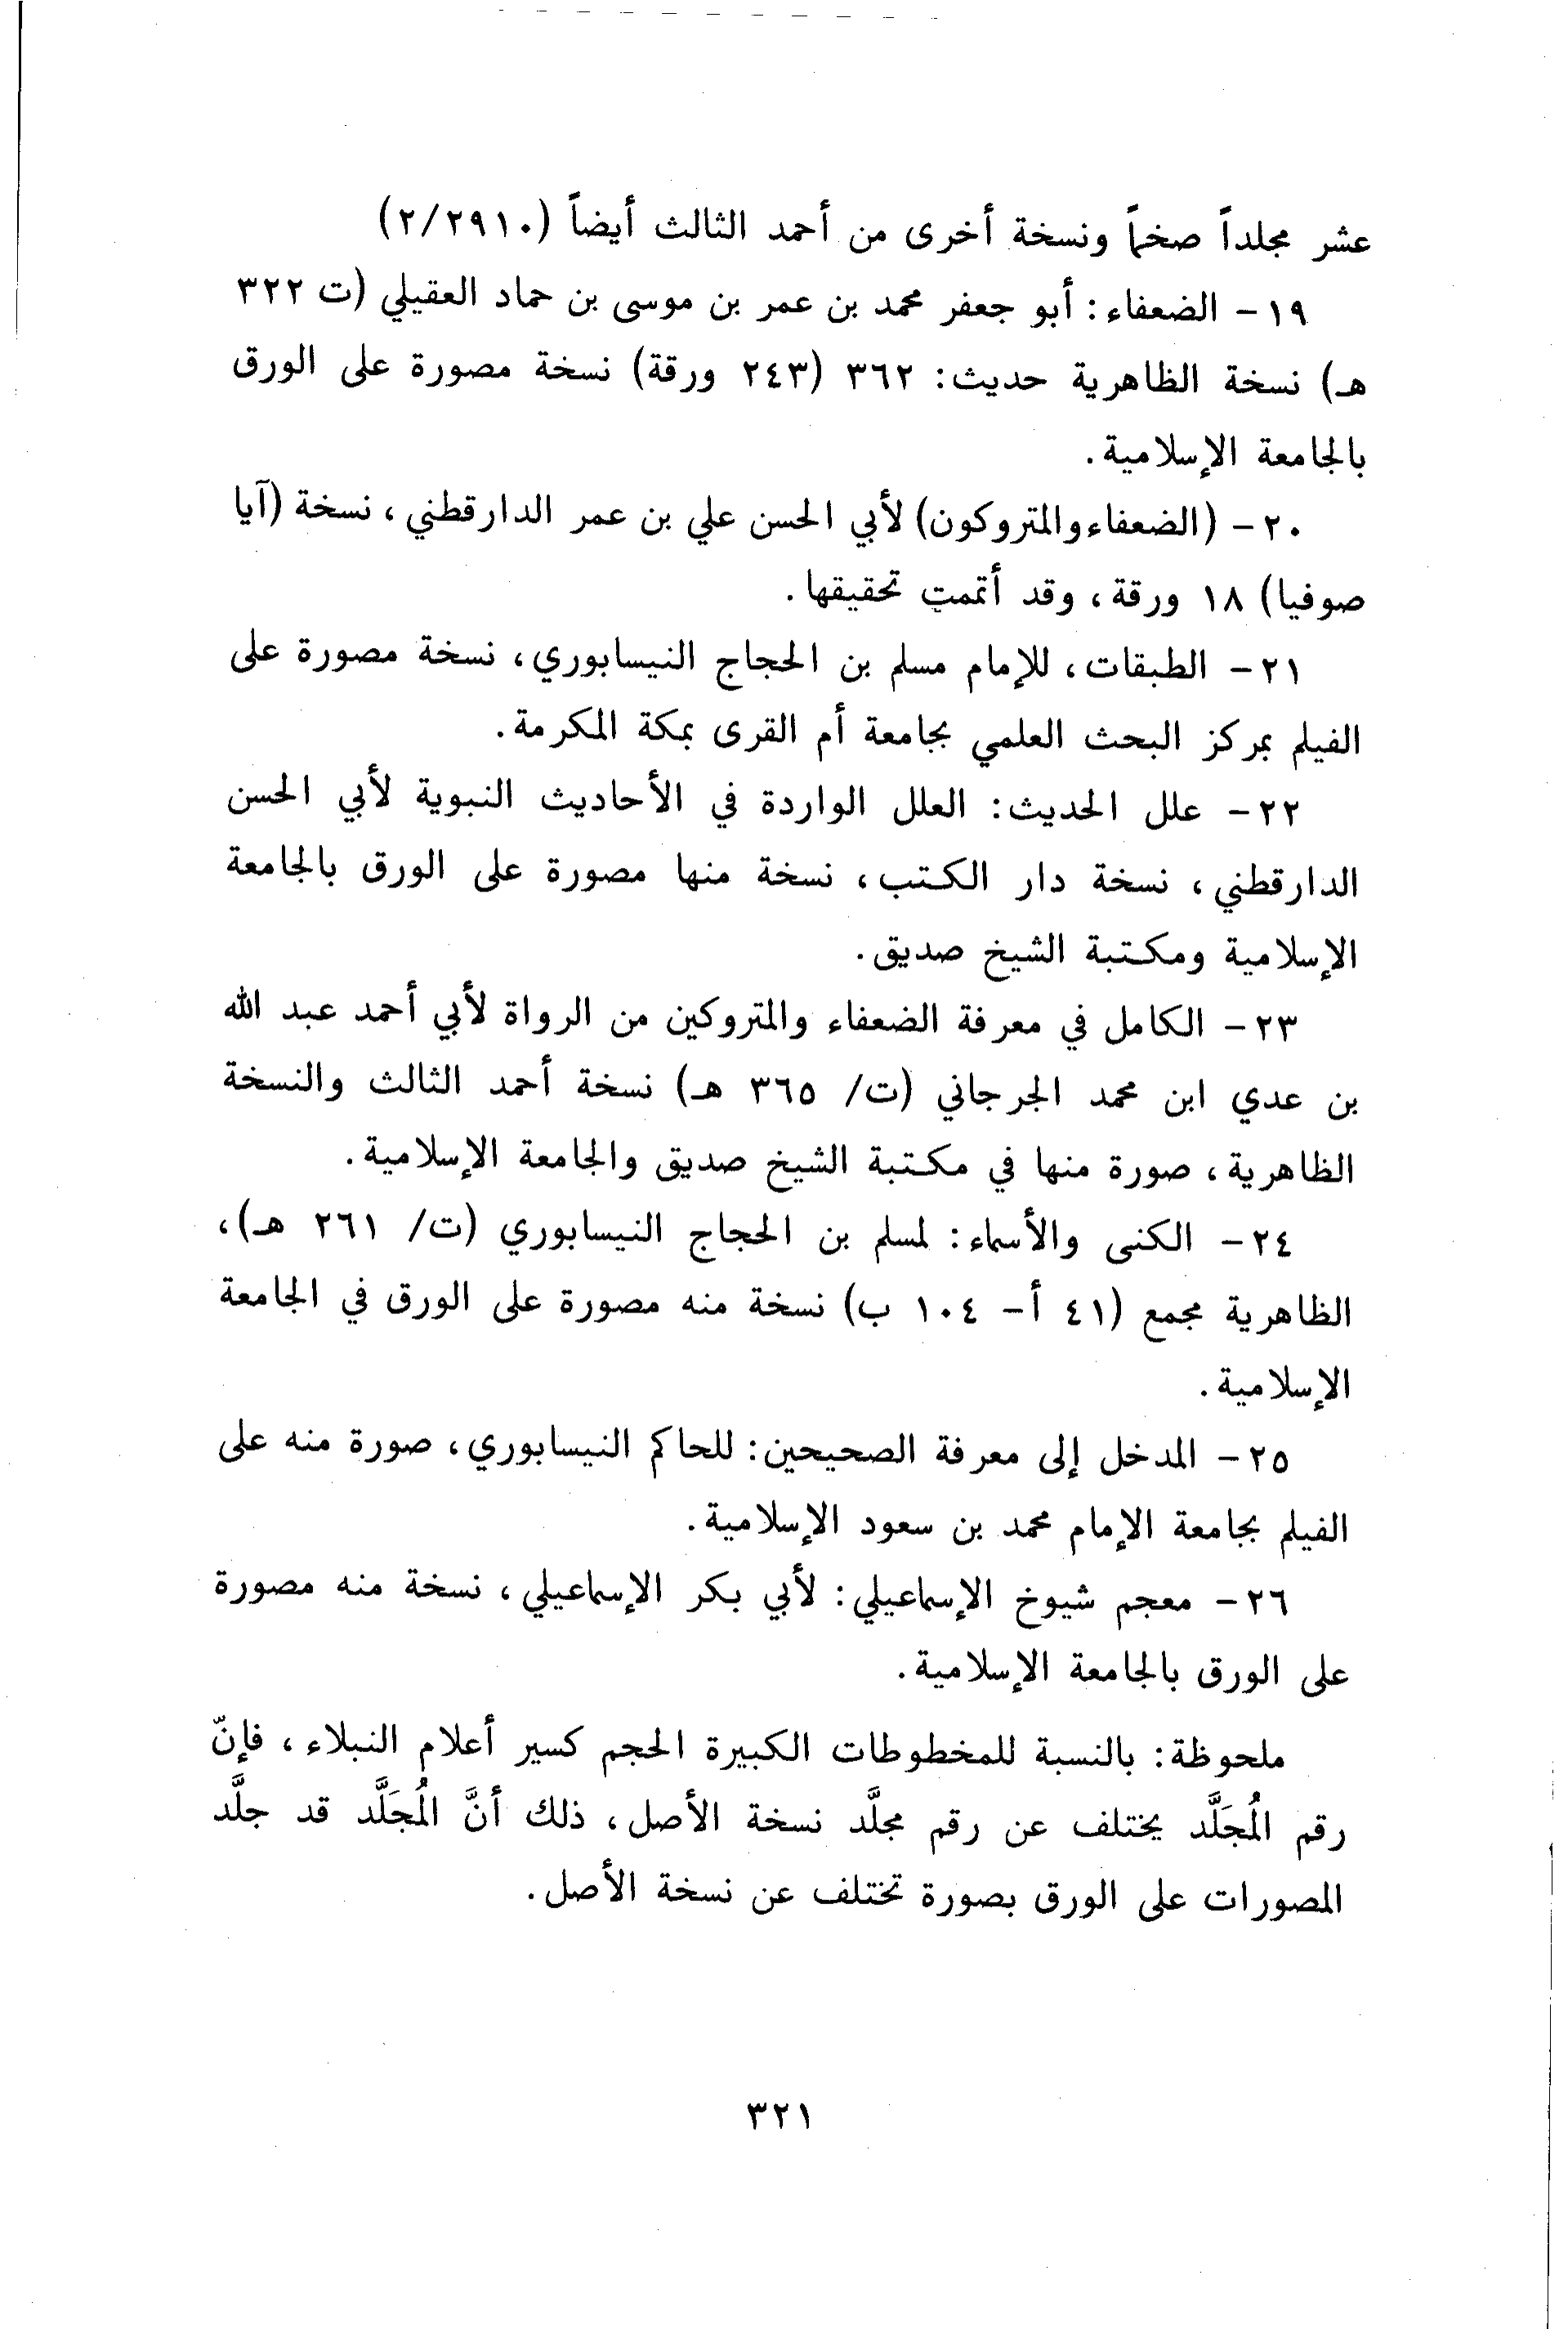 عشر مجلداً صخماً ونسخة أخرى من أحمد الثالث أيضاً (٢/٢٩١٠)
١٩- الضعفاء: أبو جعفر محمد بن عمر بن موسى بن حماد العقيلي (ت ٣٢٢
هـ) نسخة الظاهرية حديث: ٣٦٢ (٢٤٣ ورقة) نسخة مصورة على الورق
بالجامعة الإسلامية.
٢٠- (الضعفاء والمتروكون) لأبي الحسن علي بن عمر الدارقطني، نسخة (آيا
صوفيا) ١٨ ورقة، وقد أتممت تحقيقها.
٢١- الطبقات، للإمام مسلم بن الحجاج النيسابوري، نسخة مصورة على
الفيلم بمركز البحث العلمي بجامعة أم القرى بمكة المكرمة.
٢٢- علل الحديث: العلل الواردة في الأحاديث النبوية لأبي الحسن
الدارقطني، نسخة دار الكتب، نسخة منها مصورة على الورق بالجامعة
الإسلامية ومكتبة الشيخ صديق.
٢٣- الكامل في معرفة الضعفاء والمتروكين من الرواة لأبي أحمد عبد الله
بن عدي ابن محمد الجرجاني (ت/ ٣٦٥ هـ) نسخة أحمد الثالث والنسخة
الظاهرية، صورة منها في مكتبة الشيخ صديق والجامعة الإسلامية.
٢٤- الكنى والأسماء: لمسلم بن الحجاج النيسابوري (ت/ ٢٦١ هـ)،
الظاهرية مجمع (٤١ أ- ١٠٤ ب) نسخة منه مصورة على الورق في الجامعة
الإسلامية.
٢٥- المدخل إلى معرفة الصحيحين: للحاكم النيسابوري، صورة منه على
الفيلم بجامعة الإمام محمد بن سعود الإسلامية.
٢٦- معجم شيوخ الإسماعيلي: لأبي بكر الإسماعيلي، نسخة منه مصورة
على الورق بالجامعة الإسلامية.
ملحوظة: بالنسبة للمخطوطات الكبيرة الحجم كسير أعلام النبلاء، فإنّ
رقم المُجَلَّد يختلف عن رقم مجلَّد نسخة الأصل، ذلك أنَّ المُجَلَّد قد جلَّد
المصورات على الورق بصورة تختلف عن نسخة الأصل.
٣٢١